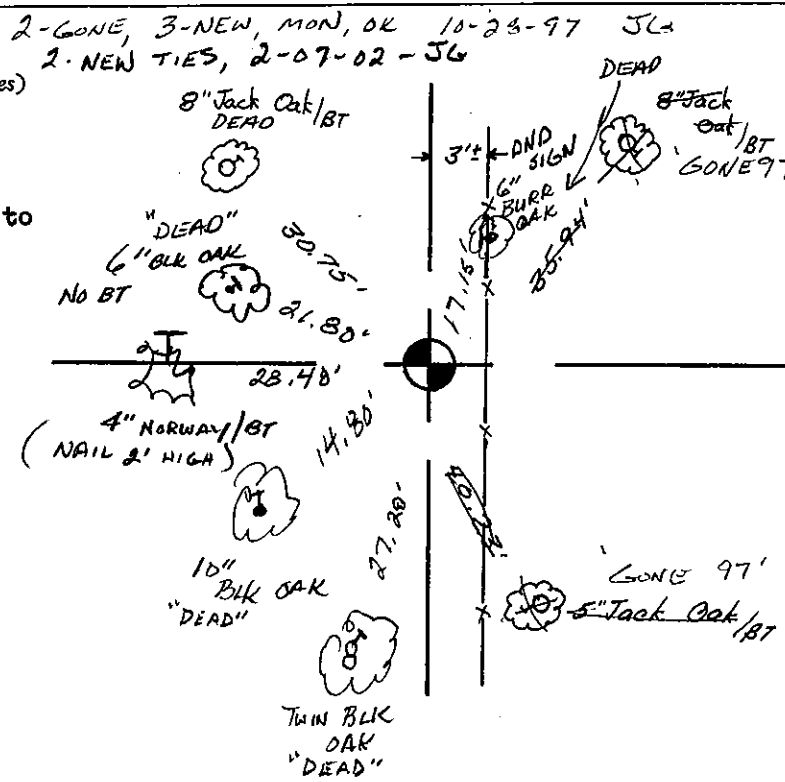 2-GONE, 3-NEW, MON, OK 10-23-97 JG
2. NEW TIES, 2-07-02 - JG
es)
DEAD
8" Jack Oak/BT
DEAD
8" Jack
Oak/BT
GONE 97
3'±
DND
SIGN
6"
BURR
OAK
to
"DEAD"
6" BLK OAK
NO BT
30.75'
21.80'
17.15'
35.94'
28.48'
4" NORWAY/BT
(NAIL 2' HIGH)
14.80'
27.28'
10"
BLK OAK
"DEAD"
'GONE 97'
5" Jack Oak/BT
TWIN BLK
OAK
"DEAD"